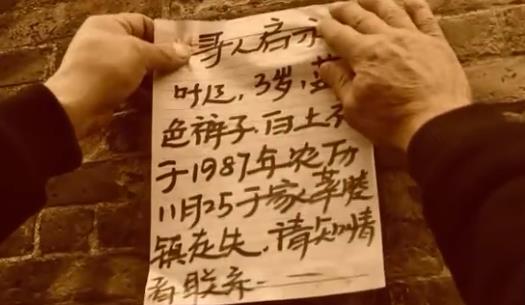 寻人启示
叶 ,3岁,蓝
色裤子.白上
于1987年农历
11月25于家莘睦
镇走失.请知情
者联系.